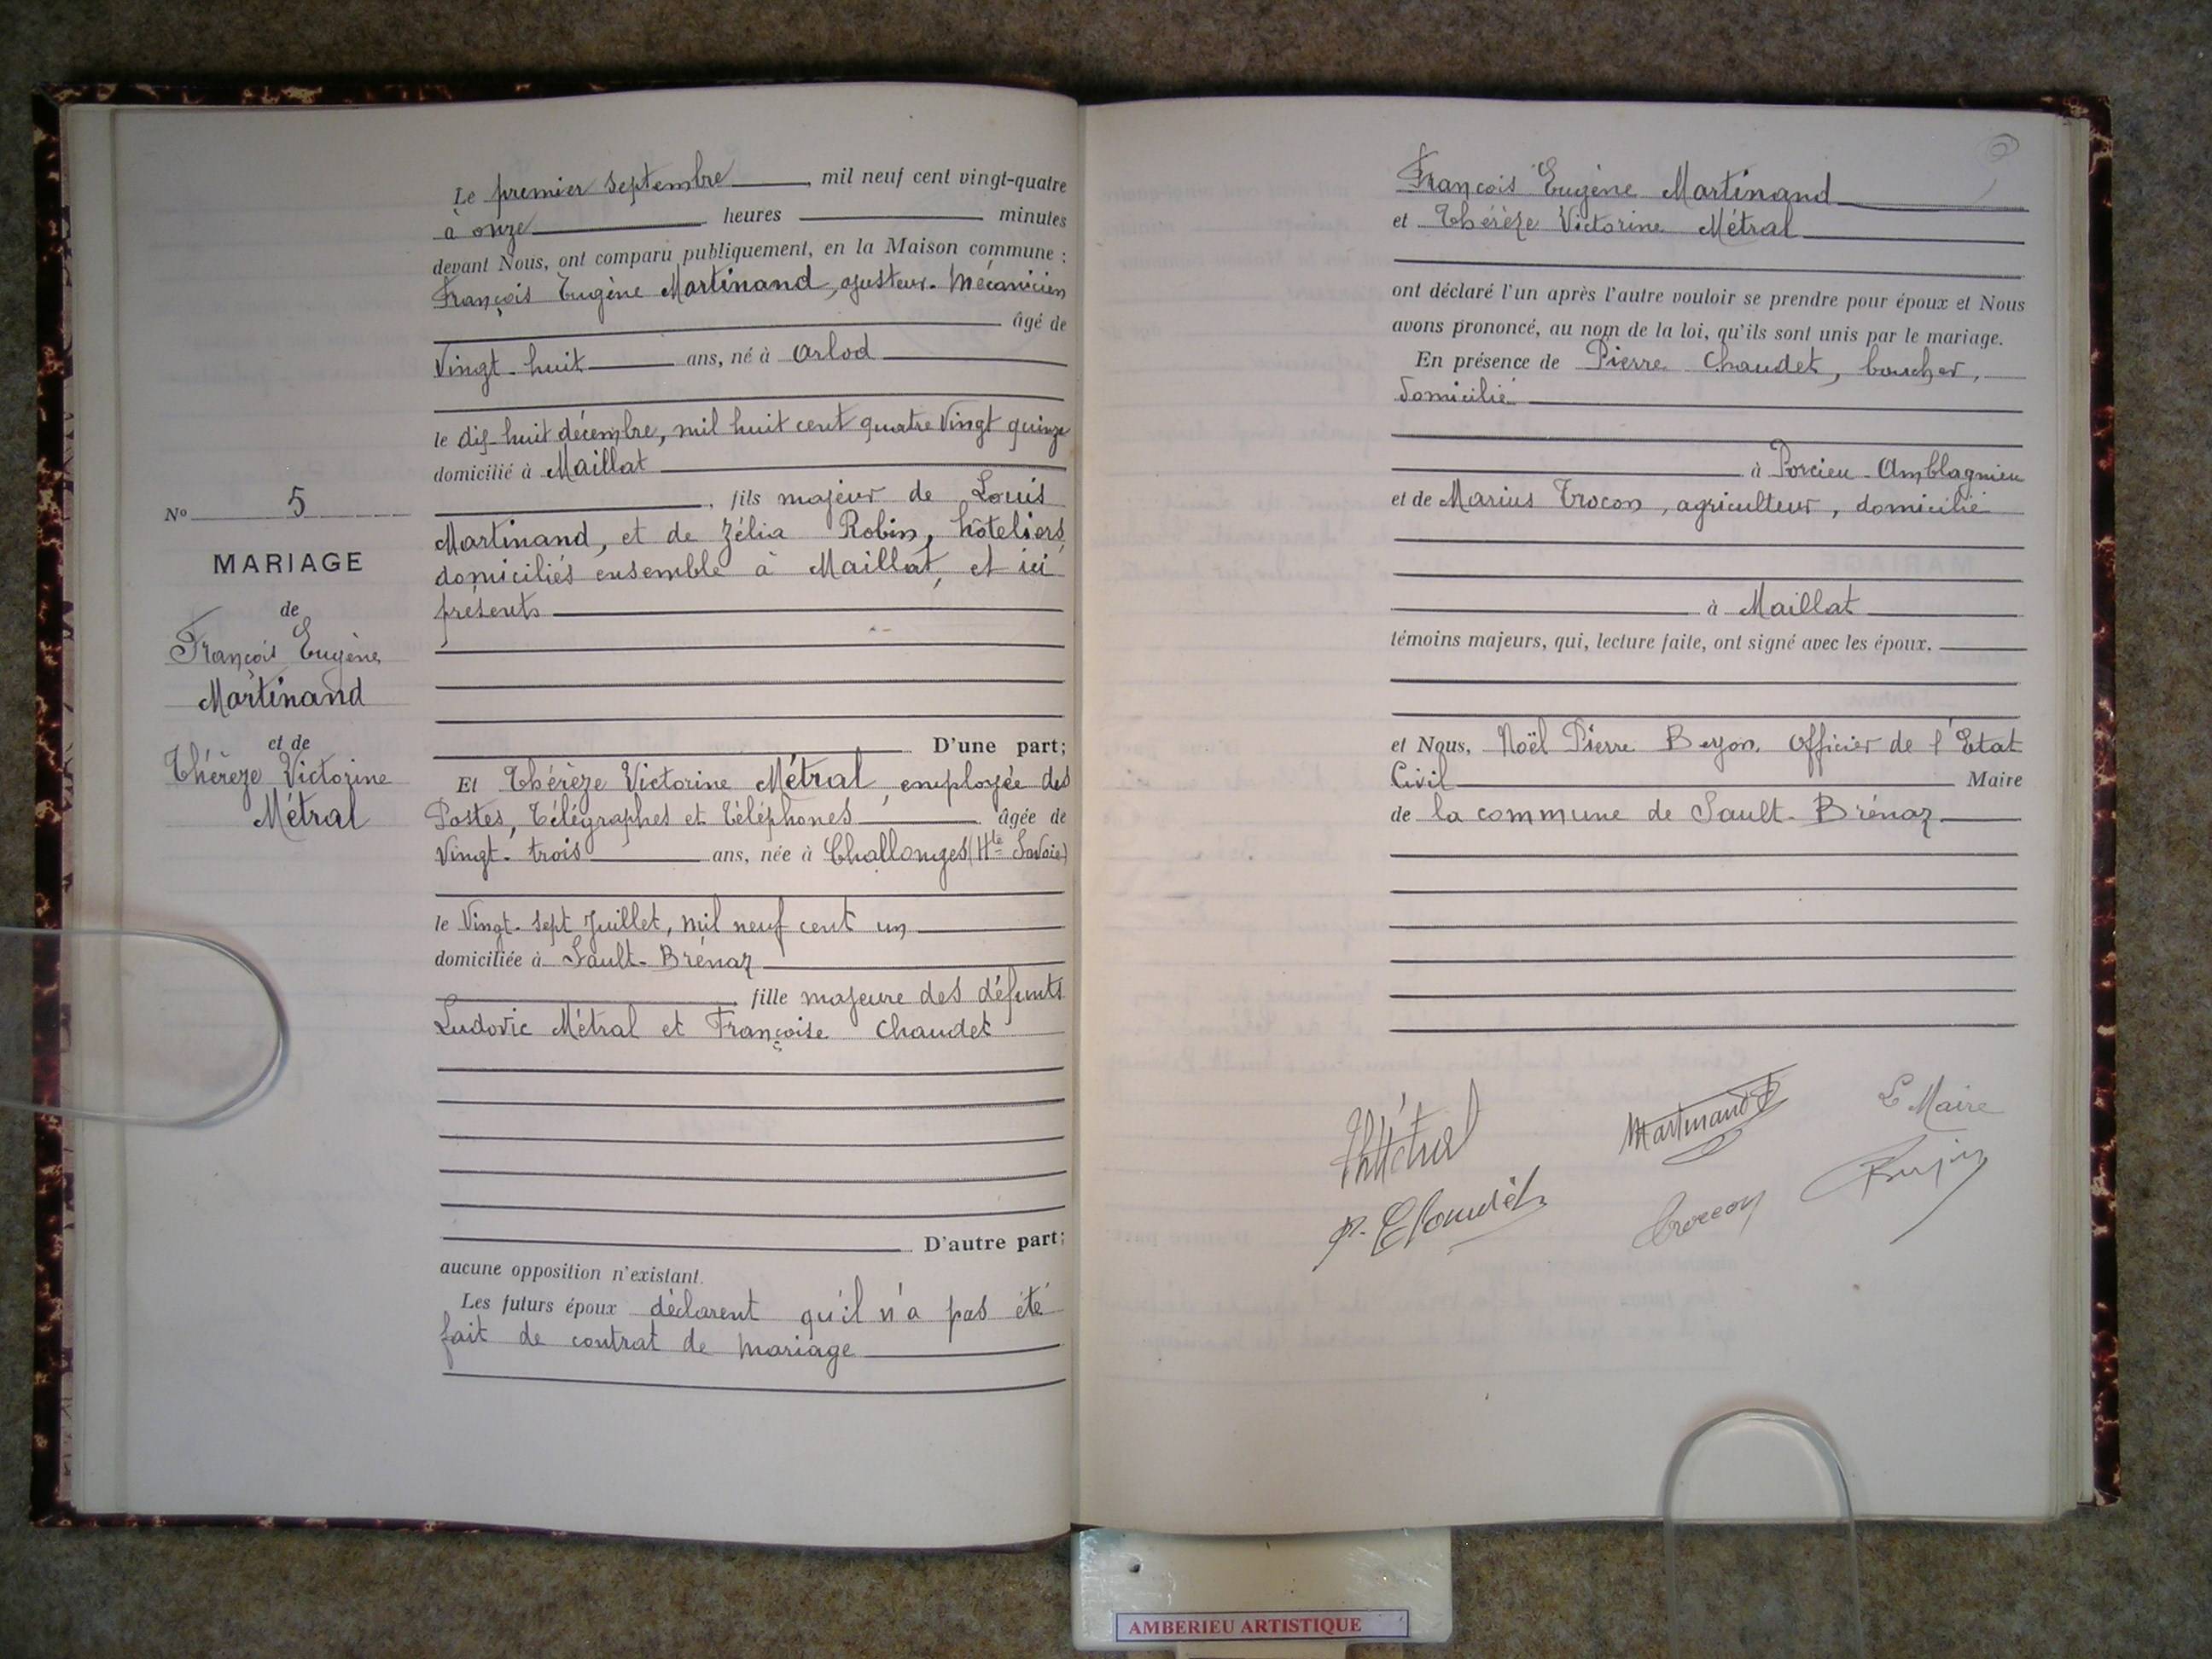 N° 5
MARIAGE
de
François Eugène
Martinand
et de
Thérèze Victorine
Métral
Le premier septembre, mil neuf cent vingt-quatre
à onze heures minutes
devant Nous, ont comparu publiquement, en la Maison commune :
François Eugène Martinand, ajusteur-Mécanicien
âgé de
Vingt-huit ans, né à Arlod
le dix-huit décembre, mil huit cent quatre Vingt quinze
domicilié à Maillat
, fils majeur de Louis
Martinand, et de Zélia Robin, hôteliers,
domiciliés ensemble à Maillat, et ici
présents
D'une part;
Et Thérèze Victorine Métral, employée des
Postes, Télégraphes et Téléphones âgée de
Vingt-trois ans, née à Challonges (Hte Savoie)
le Vingt-sept Juillet, mil neuf cent un
domiciliée à Sault-Brénaz
, fille majeure des défunts
Ludovic Métral et Françoise Chaudet
D'autre part;
aucune opposition n'existant.
Les futurs époux déclarent qu'il n'a pas été
fait de contrat de mariage
François Eugène Martinand
et Thérèze Victorine Métral
ont déclaré l'un après l'autre vouloir se prendre pour époux et Nous
avons prononcé, au nom de la loi, qu'ils sont unis par le mariage.
En présence de Pierre Chaudet, boucher,
domicilié
à Porcieu-Amblagnieu
et de Marius Trocon, agriculteur, domicilié
à Maillat
témoins majeurs, qui, lecture faite, ont signé avec les époux.
et Nous, Noël Pierre Officier de l'Etat
Civil Maire
de la commune de Sault-Brénaz
Le Maire
Martinand
P. Chaudet
AMBERIEU ARTISTIQUE